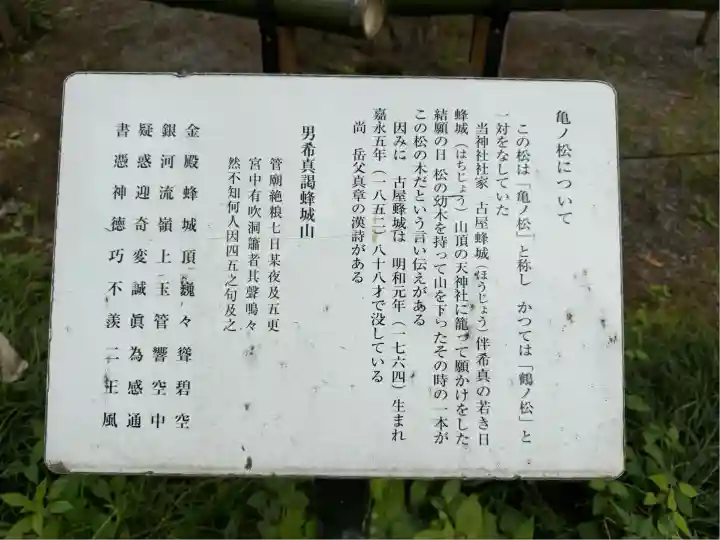 亀ノ松について
この松は「亀ノ松」と称し　かつては「鶴ノ松」と
一対をなしていた
当神社社家　古屋蜂城（ほうじょう）伴希真の若き日
蜂城（はちじょう）山頂の天神社に籠って願かけをした
結願の日　松の幼木を持って山を下ったその時の一本が
この松の木だという言い伝えがある
因みに　古屋蜂城は　明和元年（一七六四）生まれ
嘉永五年（一八五二）八十八才で没している
尚　岳父真章の漢詩がある
男希真謁蜂城山
管廟絶粮七日某夜及五更
宮中有吹洞簫者其聲鳴々
然不知何人因四五之句及之
金殿蜂城頂巍々聳碧空
銀河流嶺上玉管響空中
疑惑迎奇変誠眞為感通
書憑神德巧不羨二王風